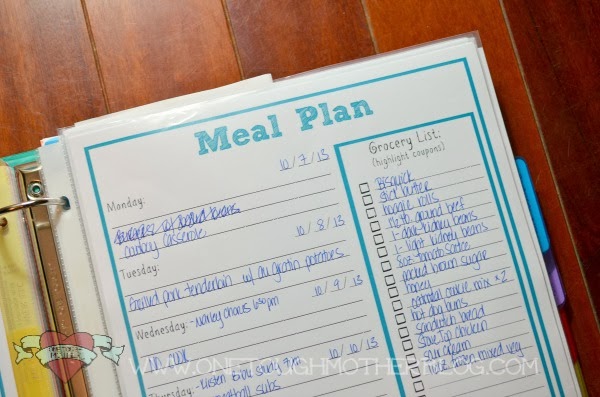 Meal Plan
10/7/13
Monday:
cowboy casserole
10/8/13
Tuesday:
Broiled pork tenderloin w/ au gratin potatoes
10/9/13
Wednesday: 6:30pm
10/10/13
Thursday:
subs
Grocery List:
(highlight coupons)
Bisquick
stick butter
hoagie rolls
ground beef
1- dark kidney beans
1- light kidney beans
8oz tomato sauce
packed brown sugar
honey
oatmeal cookie mix x2
hot dog buns
sandwich bread
stove top chicken
frozen mixed veg
WWW.ONETOUGHMOTHERBLOG.COM